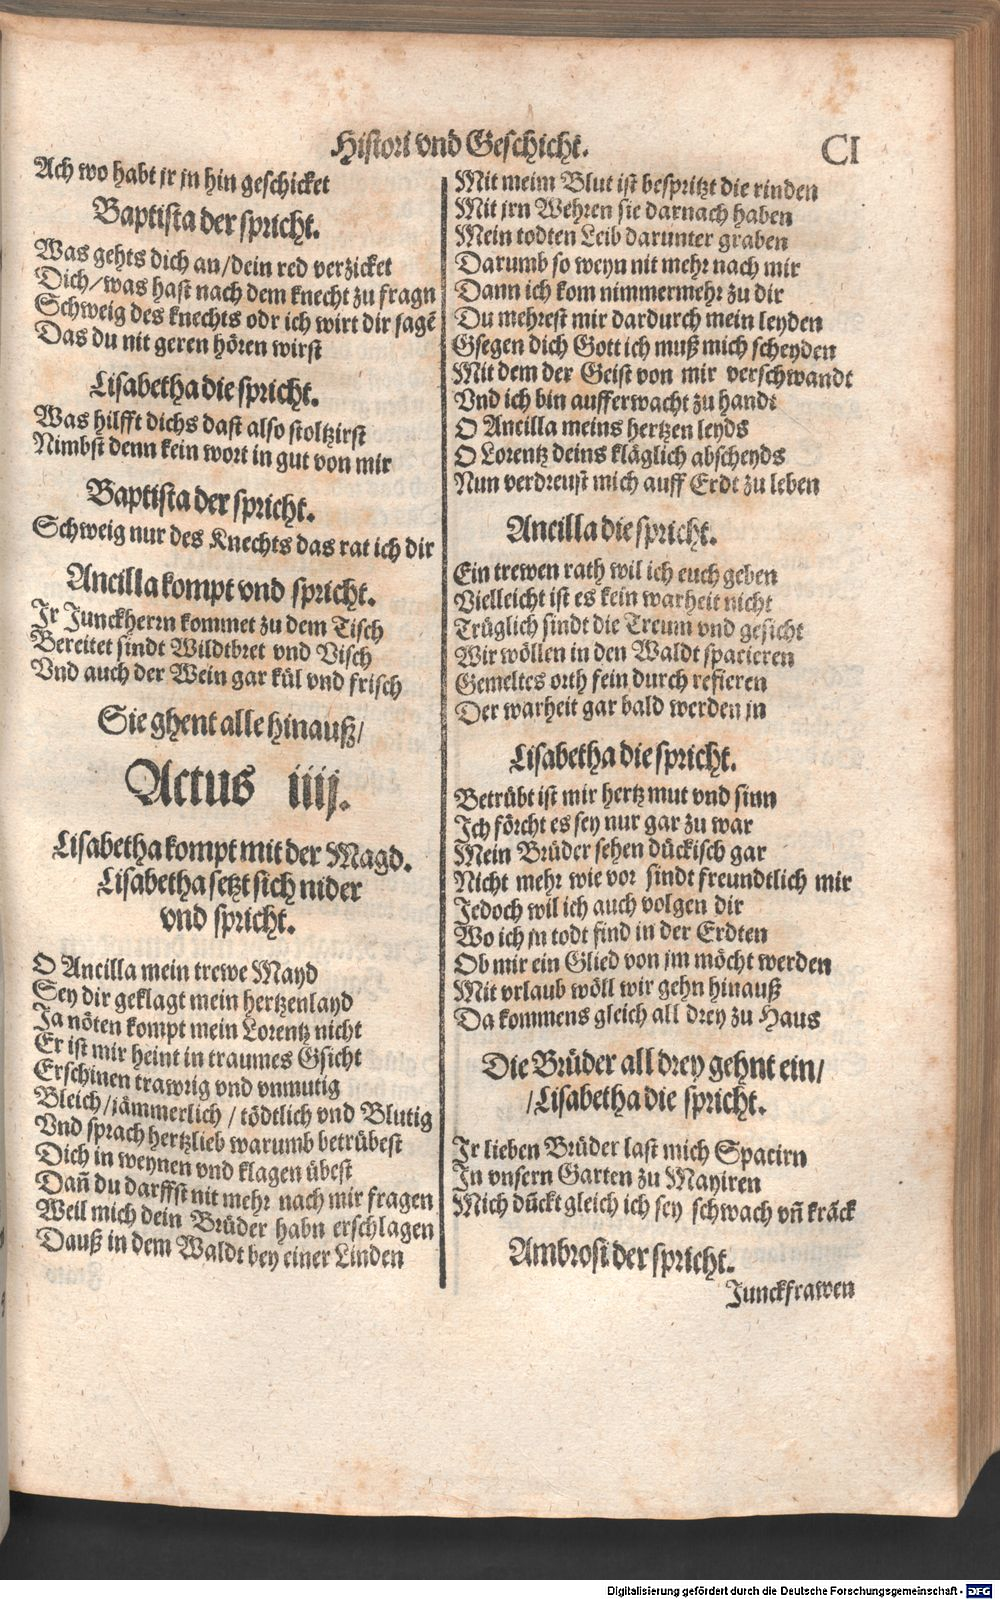 Histori vnd Geschicht.
CI
Ach wo habt jr jn hin geschicket
Baptista der spricht.
Was gehts dich an/dein red verzicket
Dich/was hast nach dem knecht zu fragn
Schweig des knechts odr ich wirt dir sagẽ
Das du nit geren hören wirst
Lisabetha die spricht.
Was hilfft dichs dast also stoltzirst
Nimbst denn kein wort in gut von mir
Baptista der spricht.
Schweig nur des Knechts das rat ich dir
Ancilla kompt vnd spricht.
Jr Junckherrn kommet zu dem Tisch
Bereitet sindt Wildtbret vnd Visch
Vnd auch der Wein gar kül vnd frisch
Sie ghent alle hinauß/
Actus iiij.
Lisabetha kompt mit der Magd.
Lisabetha setzt sich nider
vnd spricht.
O Ancilla mein trewe Mayd
Sey dir geklagt mein hertzenlayd
Ja nöten kompt mein Lorentz nicht
Er ist mir heint in traumes Gsicht
Erschinen trawrig vnd vnmutig
Bleich/jämmerlich/tödtlich vnd Blutig
Vnd sprach hertzlieb warumb betrübest
Dich in weynen vnd klagen übest
Dañ du darffst nit mehr nach mir fragen
Weil mich dein Brüder habn erschlagen
Dauß in dem Waldt bey einer Linden
Mit meim Blut ist bespritzt die rinden
Mit jrn Wehren sie darnach haben
Mein todten Leib darunter graben
Darumb so weyn nit mehr nach mir
Dann ich kom nimmermehr zu dir
Du mehrest mir dardurch mein leyden
Gsegen dich Gott ich muß mich scheyden
Mit dem der Geist von mir verschwandt
Vnd ich bin aufferwacht zu handt
O Ancilla meins hertzen leyds
O Lorentz deins kläglich abscheyds
Nun verdreust mich auff Erdt zu leben
Ancilla die spricht.
Ein trewen rath wil ich euch geben
Vielleicht ist es kein warheit nicht
Trüglich sindt die Treum vnd gesicht
Wir wöllen in den Waldt spacieren
Gemeltes orth fein durch refieren
Der warheit gar bald werden jn
Lisabetha die spricht.
Betrübt ist mir hertz mut vnd sinn
Ich förcht es sey nur gar zu war
Mein Brüder sehen dückisch gar
Nicht mehr wie vor sindt freundtlich mir
Jedoch wil ich auch volgen dir
Wo ich jn todt find in der Erdten
Ob mir ein Glied von jm möcht werden
Mit vrlaub wöll wir gehn hinauß
Da kommens gleich all drey zu Haus
Die Brüder all drey gehnt ein/
/Lisabetha die spricht.
Jr lieben Brüder last mich Spacirn
In vnsern Garten zu Mayiren
Mich dückt gleich ich sey schwach vñ kräck
Ambrosi der spricht.
Junckfrawen
Digitalisierung gefördert durch die Deutsche Forschungsgemeinschaft - DFG